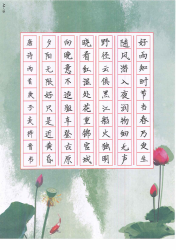 好雨知时节当春乃发生
随风潜入夜润物细无声
野径云俱黑江船火独明
晓看红湿处花重锦官城
向晚意不适驱车登古原
夕阳无限好只是近黄昏
唐诗两首庚子书